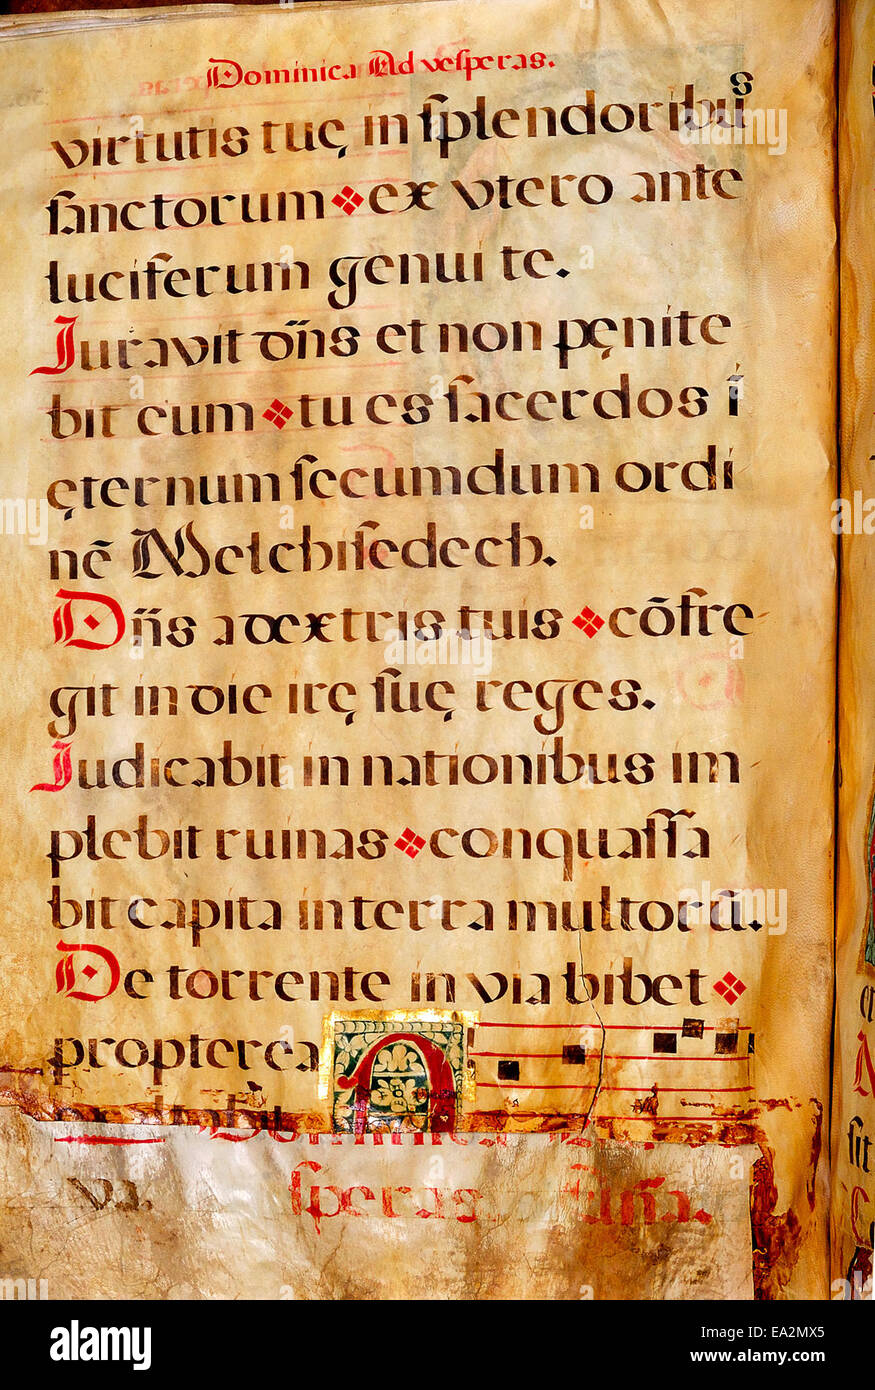 Dominica Ad vesperas.
virtutis tuę in splendoribus
sanctorum ex vtero ante
luciferum genui te.
Juravit dn̄s et non pęnite
bit eum tu es sacerdos ī
ęternum secumdum ordi
nē Melchisedech.
Dn̄s a dextris tuis cōfre
git in die irę suę reges.
Judicabit in nationibus im
plebit ruinas conquassa
bit capita in terra multorū.
De torrente in via bibet
propterea
Dominica
va. speras
alamy
Image ID: EA2MX5
www.alamy.com